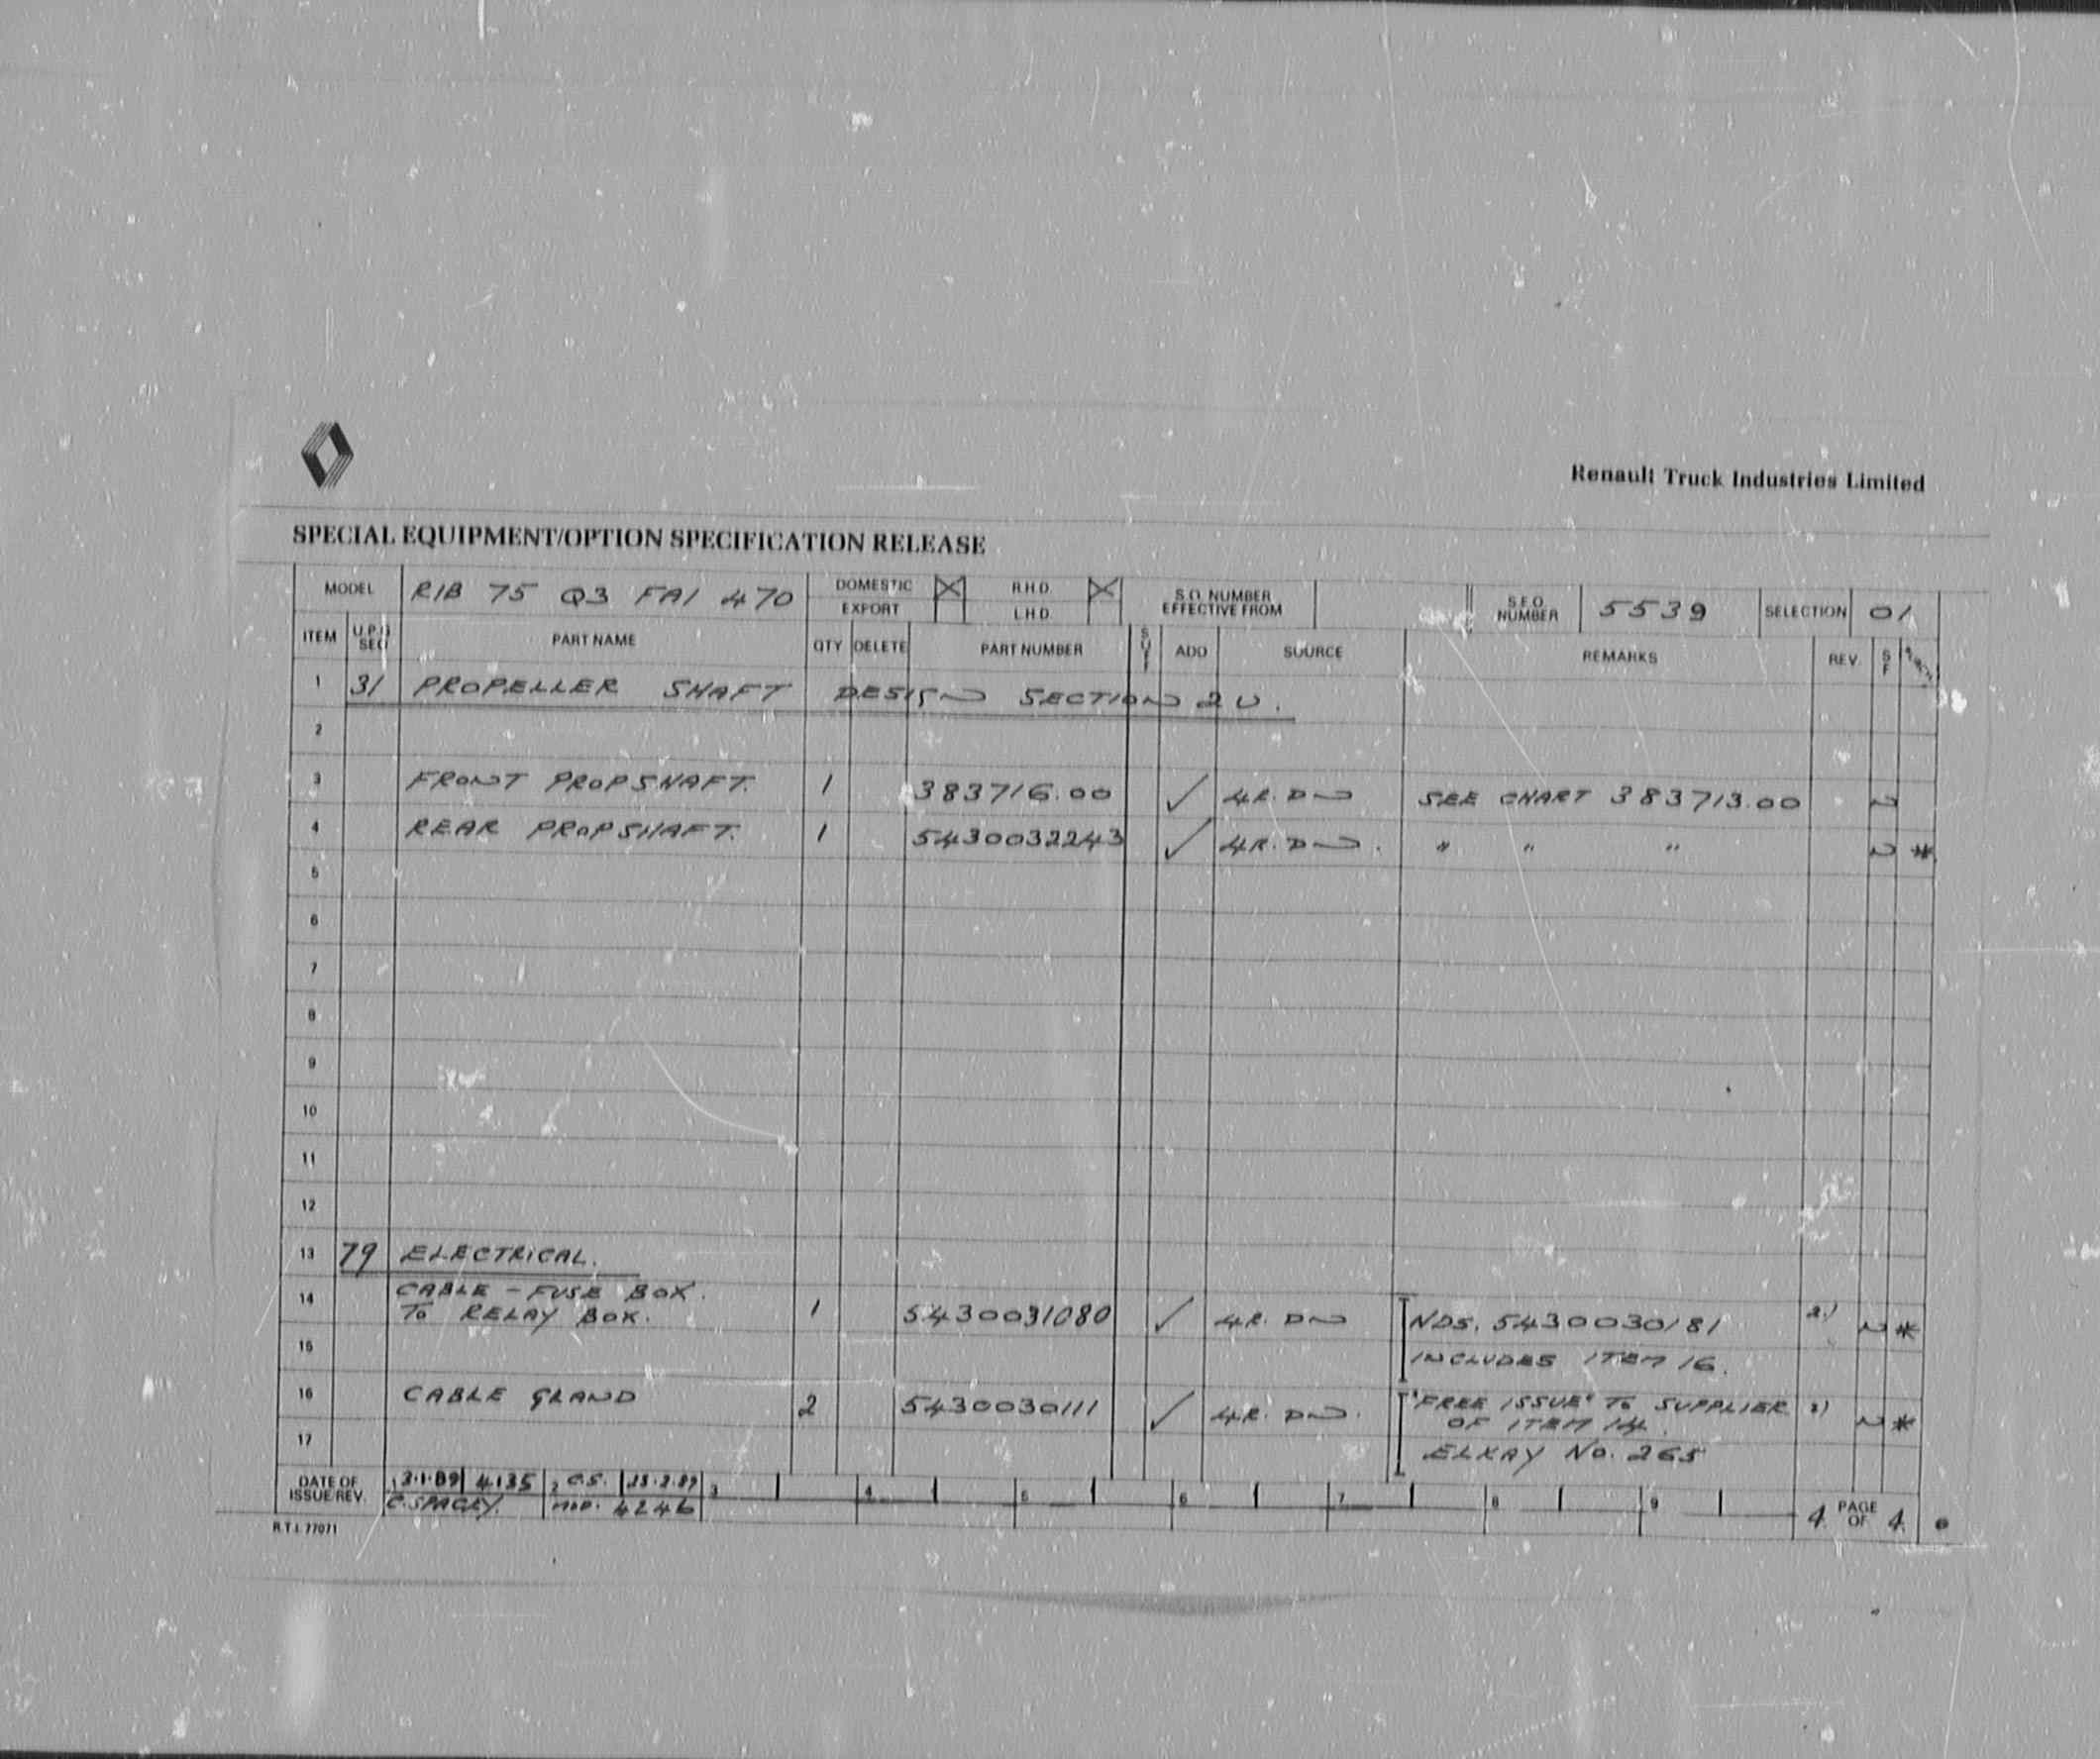 Renault Truck Industries Limited
SPECIAL EQUIPMENT/OPTION SPECIFICATION RELEASE
MODEL R1B 75 Q3 FA1 470 DOMESTIC R.H.D. S.O. NUMBER EFFECTIVE FROM S.E.O. NUMBER 5539 SELECTION 01
EXPORT L.H.D.
ITEM SEC PART NAME QTY DELETE PART NUMBER ADD SOURCE REMARKS REV. S F
1 31 PROPELLER SHAFT DESIGN SECTION 2U.
2
3 FRONT PROPSHAFT. 1 383716.00 ✓ 4R. DN SEE CHART 383713.00 N
4 REAR PROPSHAFT. 1 5430032243 ✓ 4R. DN. " " " N *
5
6
7
8
9
10
11
12
13 79 ELECTRICAL.
14 CABLE - FUSE BOX. TO RELAY BOX. 1 5430031080 ✓ 4R. DN NDS. 5430030181 2) N *
15 INCLUDES ITEM 16.
16 CABLE GLAND 2 5430030111 ✓ 4R. DN. "FREE ISSUE" TO SUPPLIER OF ITEM 14. N *
17 ELKAY No. 265
DATE OF ISSUE/REV. 1 3.1.89 4135 2 C.S. 3 4 5 6 7 8 9
C. SPACEY. MOD. 4246 4 PAGE OF 4
R.T.I. 77071